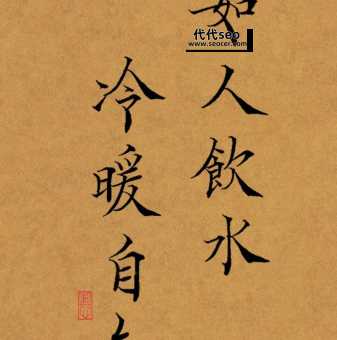 如人飲水
冷暖自
代代seo
www.seocer.com